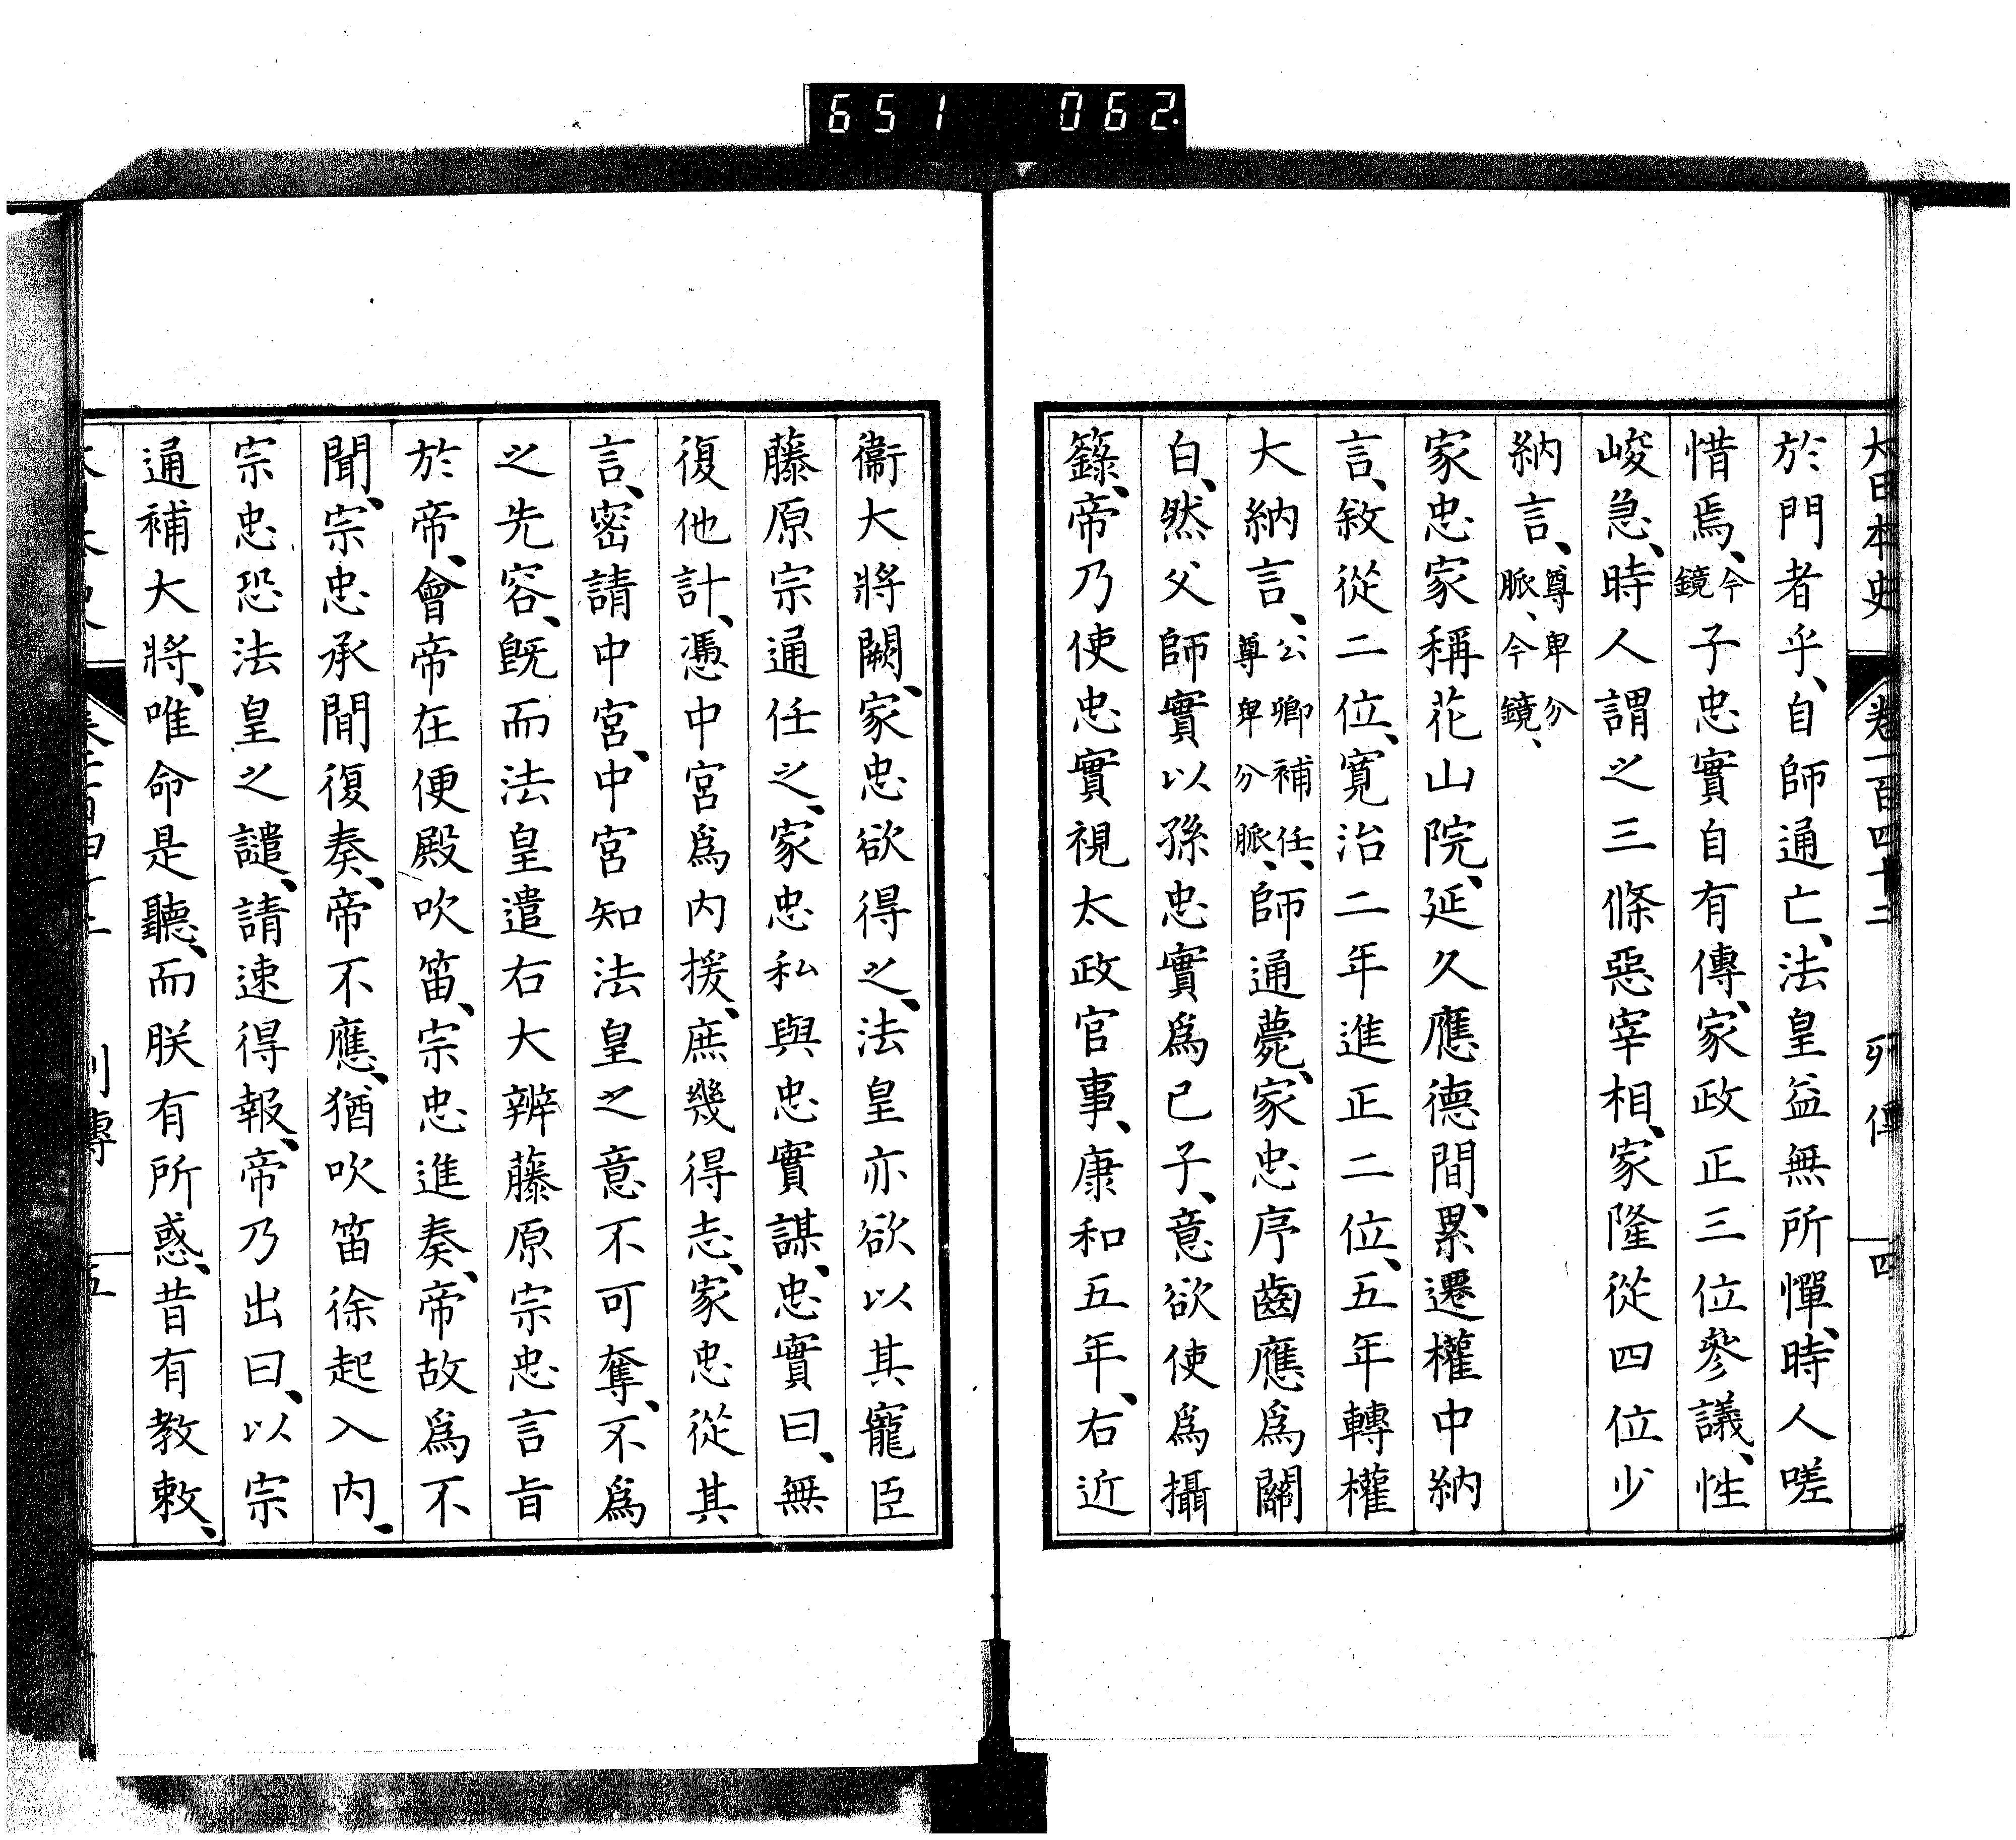 651 062
大日本史 卷一百四十二 列傳 四
於門者乎、自師通亡、法皇益無所憚、時人嗟
惜焉、今鏡子忠實自有傳、家政正三位參議、性
峻急、時人謂之三條惡宰相、家隆從四位少
納言、尊卑分脈、今鏡、
家忠家稱花山院、延久應德間、累遷權中納
言、敘從二位、寬治二年進正二位、五年轉權
大納言、公卿補任、尊卑分脈、師通薨、家忠序齒應爲關
白、然父師實以孫忠實爲己子、意欲使爲攝
籙、帝乃使忠實視太政官事、康和五年、右近
衞大將闕、家忠欲得之、法皇亦欲以其寵臣
藤原宗通任之、家忠私與忠實謀、忠實曰、無
復他計、憑中宮爲內援、庶幾得志、家忠從其
言、密請中宮、中宮知法皇之意不可奪、不爲
之先容、旣而法皇遣右大辨藤原宗忠言旨
於帝、會帝在便殿吹笛、宗忠進奏、帝故爲不
聞、宗忠承間復奏、帝不應、猶吹笛徐起入內、
宗忠恐法皇之譴、請速得報、帝乃出曰、以宗
通補大將、唯命是聽、而朕有所惑、昔有教敕、
列傳 五